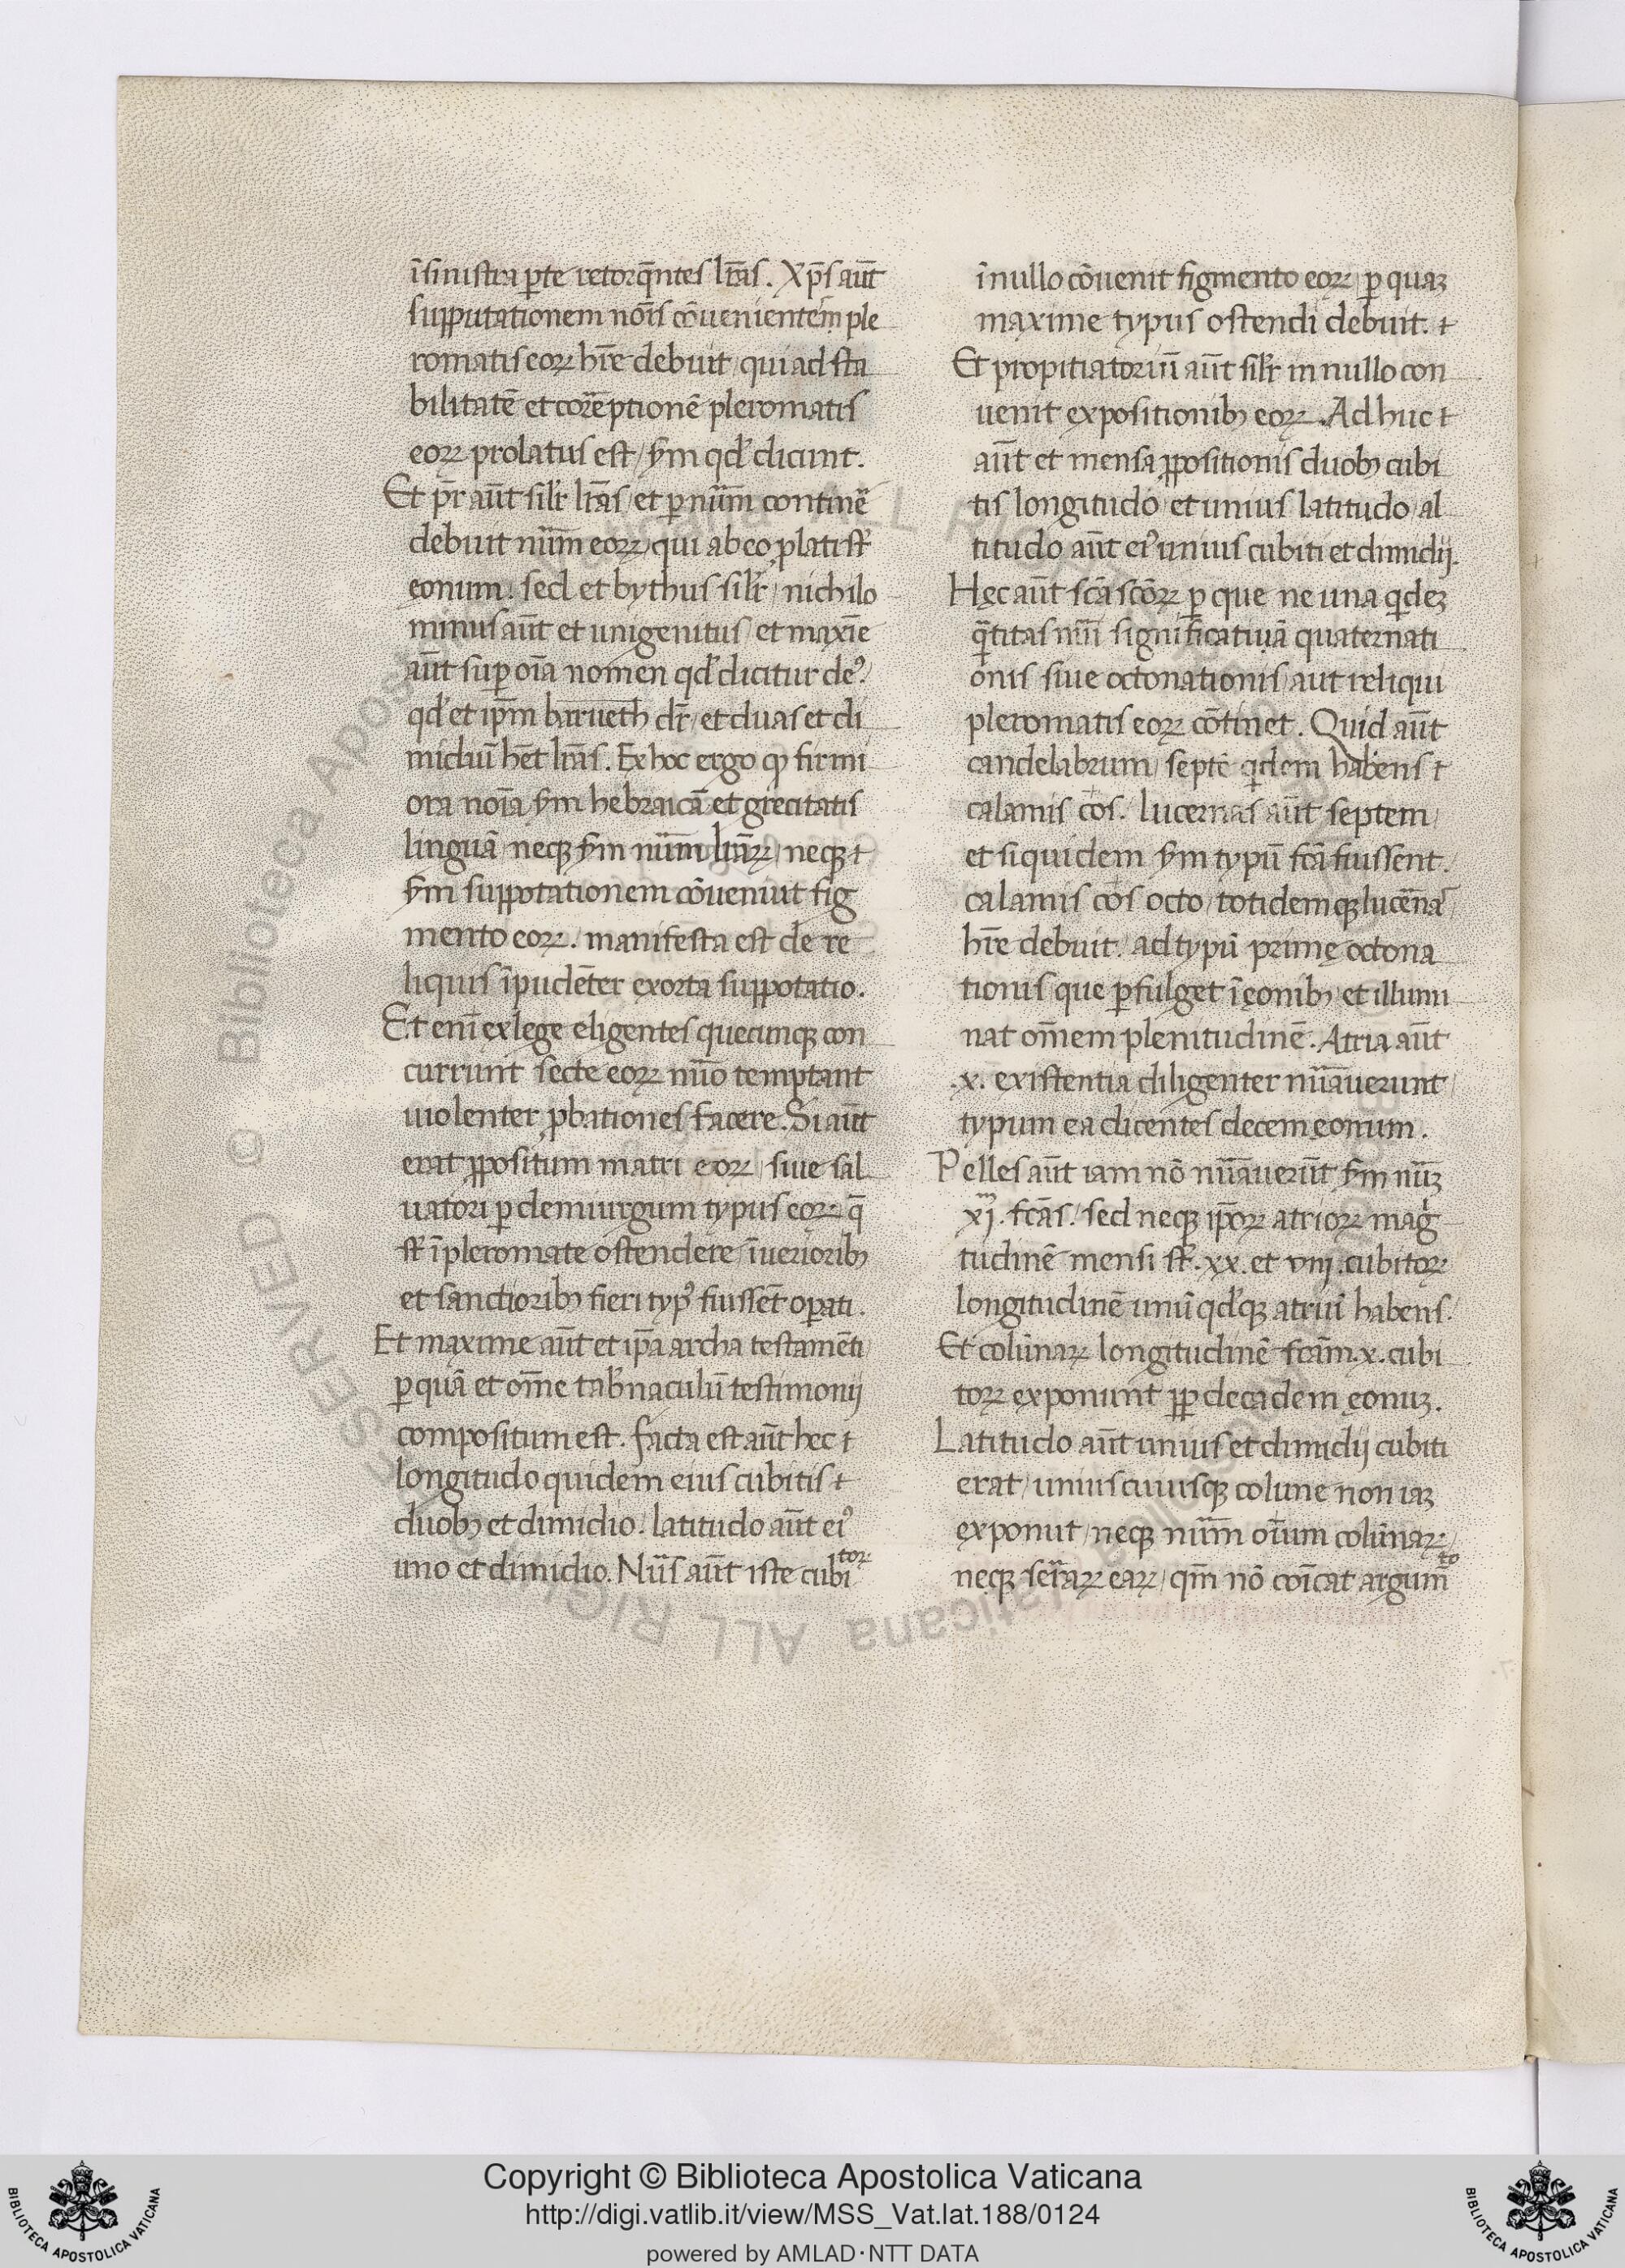 ī sinistra ꝑte retorq̄ntes lr̄as. Xp̄s aūt
supputationem nōis cōuenientem ple
romatis eoꝝ hr̄e debuit / qui ad sta
bilitatē et correptionē pleromatis
eoꝝ prolatus est / sꝫm qd̓ dicunt.
Et pr̄ aūt silr̄ lr̄as / et ꝑ nūm continē
debuit nūm eoꝝ / qui ab eo ꝓlati st̄
ęonum. sed et bythus silr̄ / nichilo
minus aūt et unigenitus / et maxīe
aūt suꝑ oīa nomen qd̓ dicitur deꝰ /
qd̓ et ip̄m barueth dr̄ / et duas et di
midiū hēt lr̄as. Ex hoc ergo ꝙ firmi
ora noīa sꝫm hebraicā et grecitatis
linguā neqꝫ sꝫm nūm lr̄aꝝ / neqꝫ ⁊
sꝫm suppotationem cōueniūt fig
mento eoꝝ. manifesta est de re
liquis īpudēter exorta suppotatio.
Et enī ex lege eligentes quecunqꝫ con
currunt secte eoꝝ nūo temptant
uiolenter ꝓbationes facere. Si aūt
erat ꝓpositum matri eoꝝ / siue sal
uatori ꝑ demiurgum typus eoꝝ q̄
st̄ ī pleromate ostendere / ī uerioribꝫ
et sanctioribꝫ fieri typꝰ fiussēt oꝑati.
Et maxime aūt et ip̄a archa testamēti /
ꝑ quā et om̄e tab̓naculū testimonij
compositum est. facta est aūt hec ⁊
longitudo quidem eius cubitis ⁊
duobꝫ et dimidio. latitudo aūt eiꝰ
uno et dimidio. Nūs aūt iste cubitoꝝ
ī nullo cōuenit figmento eoꝝ / ꝑ quaꝫ
maxime typus ostendi debuit. ⁊
Et propitiatoriū aūt silr̄ in nullo con
uenit expositionibꝫ eoꝝ. Ad huc ⁊
aūt et mensa ꝓpositionis duobꝫ cubi
tis longitudo / et unius latitudo / al
titudo aūt eiꝰ unius cubiti et dimidij.
Hęc aūt scā scōꝝ ꝑ que ne una qͥdeꝫ
q̄titas nūi significatiuā quaternati
onis siue octonationis / aut reliqui
pleromatis eoꝝ cōtinet. Quid aūt
candelabrum / septē qͥdem habens ⁊
calamiscos. lucernas aūt septem /
et siquidem sꝫm typū fcā fiussent.
calamiscos octo / totidemqꝫ lucernas /
hr̄e debuit. ad typū primę octona
tionis / que ꝑfulget ī ęonibꝫ et illumi
nat om̄em plenitudinē. Atria aūt
.x. existentia diligenter nūauerunt /
typum ea dicentes decem ęonum.
Pelles aūt iam nō nūauerūt sꝫm nūꝫ
xj. fcās. / sed neqꝫ ip̄oꝝ atrioꝝ mag̓
tudinē mensi st̄. xx. et viij. cubitoꝝ
longitudinē unū qd̓qꝫ atriū habens. /
Et colūnaꝝ longitudinē fcām .x. cubi
toꝝ exponunt ꝓpꝑ decadem ęonuꝫ.
Latitudo aūt unius et dimidij cubiti
erat / unius cuiusqꝫ colūne non iaꝫ
exponūt / neqꝫ nūm oīum colūnaꝝ /
neqꝫ seraꝝ eaꝝ / qm̄ nō cōicat argumto
Copyright © Biblioteca Apostolica Vaticana
http://digi.vatlib.it/view/MSS_Vat.lat.188/0124
powered by AMLAD·NTT DATA